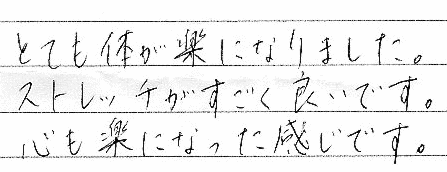 とても体が楽になりました。
ストレッチがすごく良いです。
心も楽になった感じです。